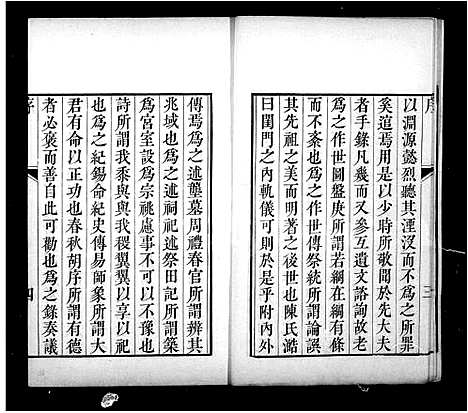 以淵源懿烈聽其湮沒而不為之所罪
奚逭焉用是以少時所敬聞於先大夫
者手錄凡幾而又參互遺文諮詢故老
為之作世圖盤庚所謂若綱在綱有條
而不紊也為之作世傳祭統所謂論譔
其先祖之美而明著之後世也陳氏澔
曰閨門之內軌儀可則於是乎附內外
傳焉為之述塋墓周禮春官所謂辨其
兆域也為之述祠祀述祭田記所謂築
為宮室設為宗祧慮事不可以不豫也
詩所謂我黍與與我稷翼翼以享以祀
也為之紀錫命紀史傳易師象所謂大
君有命以正功也春秋胡序所謂有德
者必褒而善自此可勸也為之錄奏議
序
四